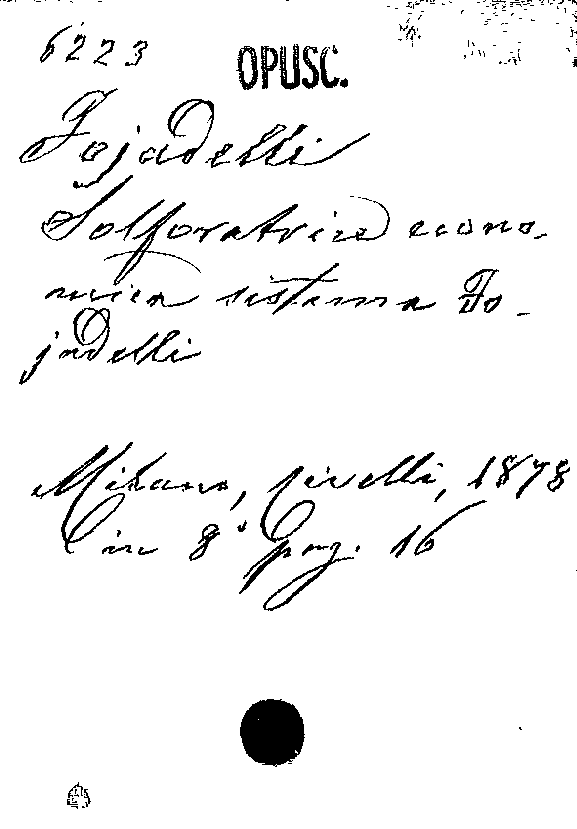 6223
OPUSC.
Fojadelli
Solforatrice econo-
mica sistema Fo-
jadelli
Milano, Civelli, 1878
in 8° pag. 16